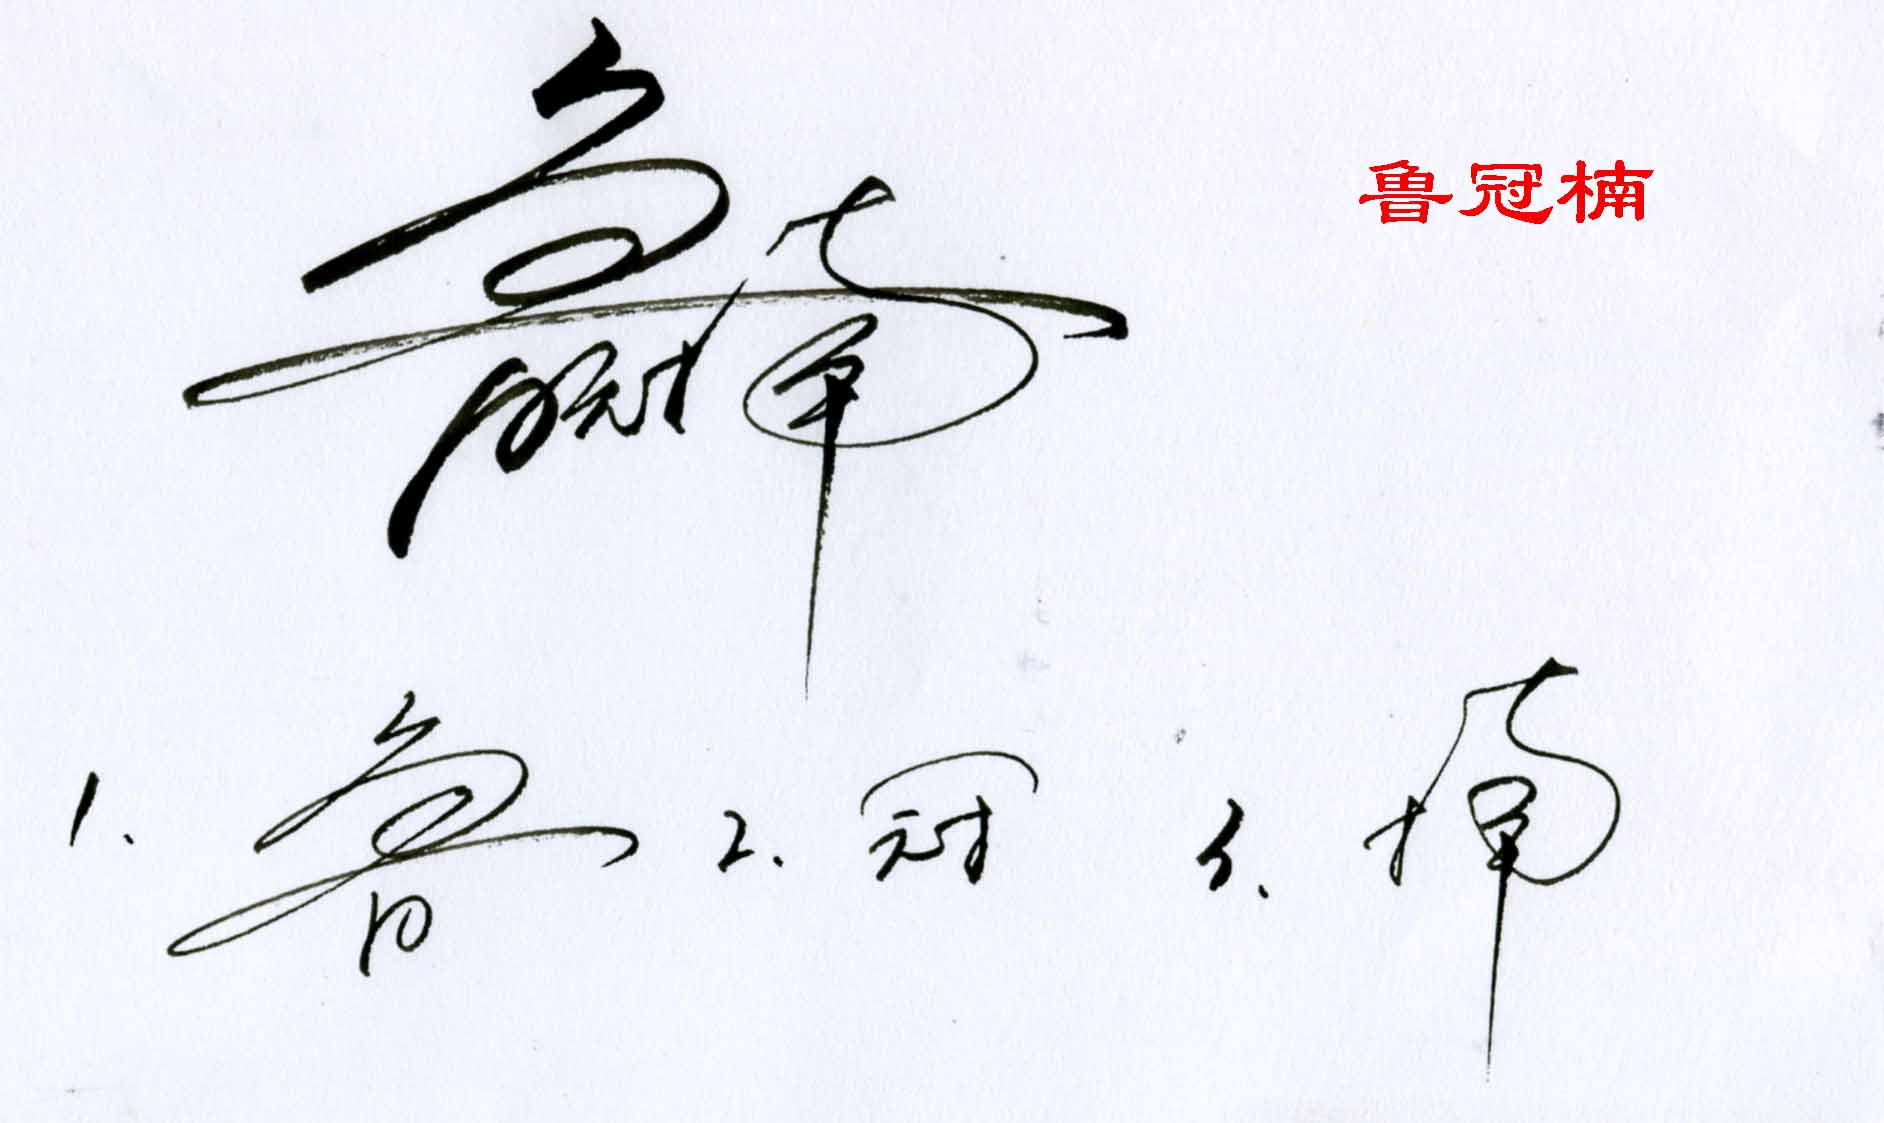 鲁冠楠
鲁冠楠
1. 鲁 2. 冠 3. 楠